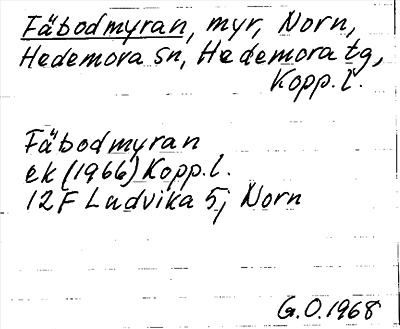 Fäbodmyran, myr, Norn,
Hedemora sn, Hedemora tg,
Kopp.l.
Fäbodmyran
ek (1966) Kopp.l.
12F Ludvika 5j Norn
G.O.1968